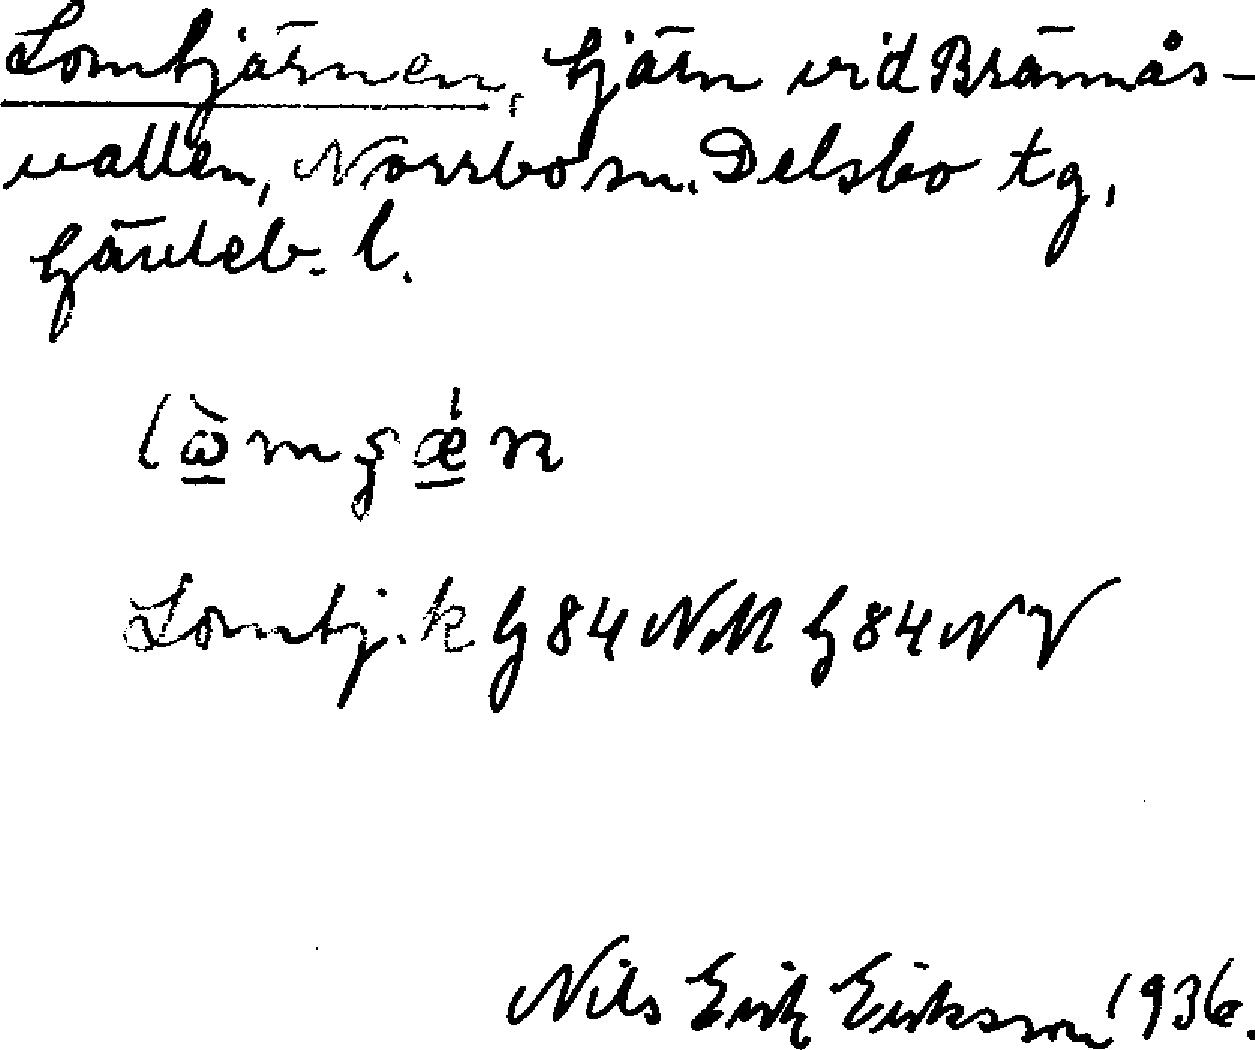 Lomtjärnen, tjärn vid Brännås-
vallen, Norrbo sn. Delsbo tg,
Gävleb. l.
Lomtj. k G 84 NM G 84 NV
Nils Erik Eriksson 1936.